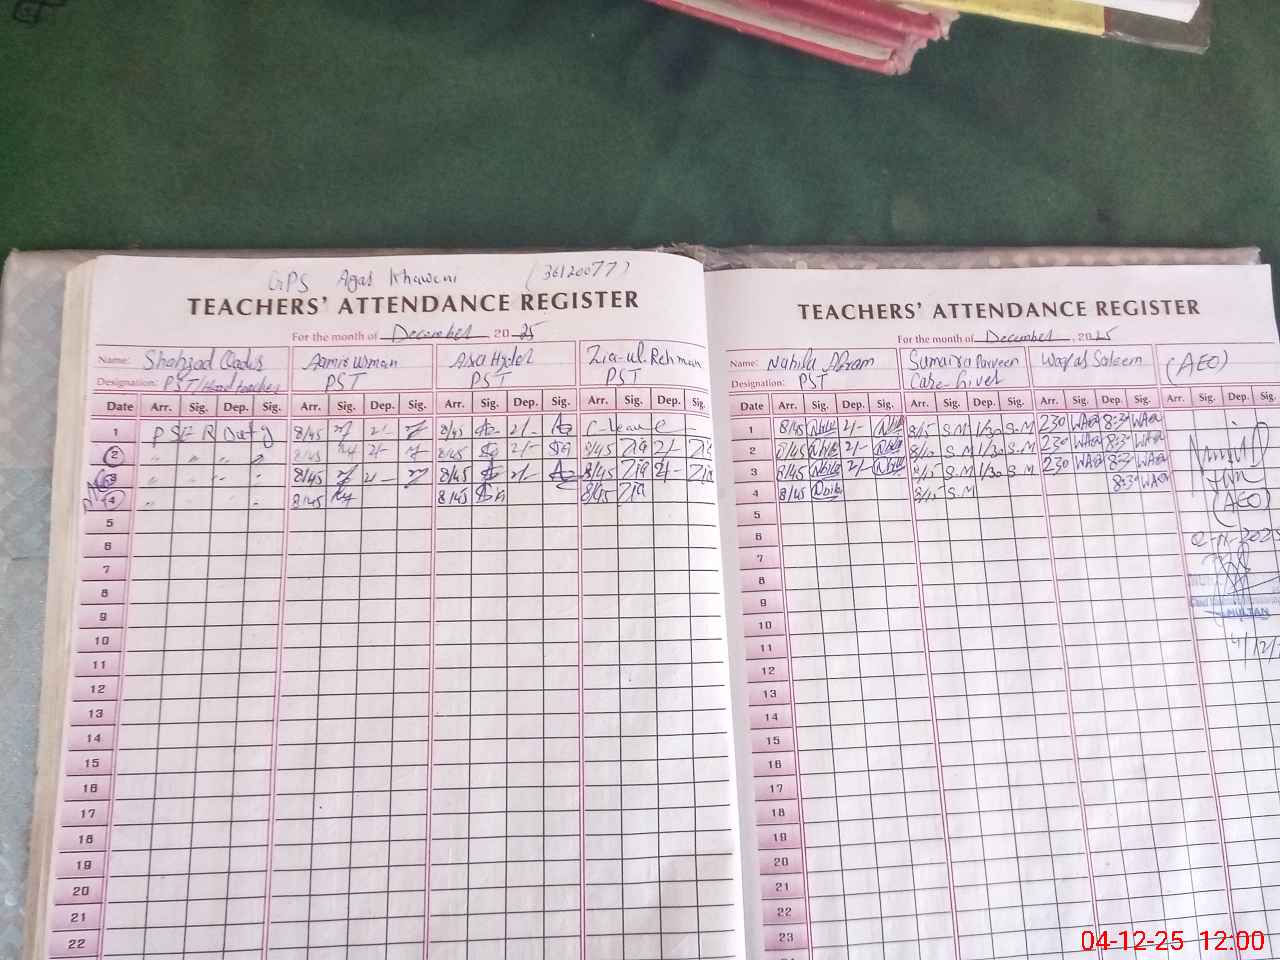 GPS Agas Khawani (36120077)
TEACHERS' ATTENDANCE REGISTER
For the month of December 2025
Name: Shahzad Qadus Aamir Usman Asa Hyder Zia-ul-Rehman
Designation: PST/Head teacher PST PST PST
Date Arr. Sig. Dep. Sig. Arr. Sig. Dep. Sig. Arr. Sig. Dep. Sig. Arr. Sig. Dep. Sig.
1 PSER Duty 8/45 2/- 8/45 2/- C-leave
2 " " " " 8/45 2/- 8/45 2/- 8/45 Zia 2/- Zia
3 " " " 8/45 2/- 8/45 2/- 8/45 Zia 2/- Zia
4 " " " 8/45 8/45 8/45 Zia
5
6
7
8
9
10
11
12
13
14
15
16
17
18
19
20
21
22
TEACHERS' ATTENDANCE REGISTER
For the month of December, 2025
Name: Nahila Akram Sumaira Parveen Waqas Saleem (AEO)
Designation: PST Care-Giver
Date Arr. Sig. Dep. Sig. Arr. Sig. Dep. Sig. Arr. Sig. Dep. Sig. Arr. Sig. Dep. Sig.
1 8/45 2/- 8/15 S.M 1/30 S.M 230 8:30
2 8/45 2/- S.M 1/30 S.M 230 8:30
3 8/45 2/- S.M 1/30 S.M 230 8:30
4 8/45 S.M 8:30
(AEO)
5
6
7
8
9
MULTAN
10
11
4/12/
12
13
14
15
16
17
18
19
20
21
22
23
04-12-25 12:00